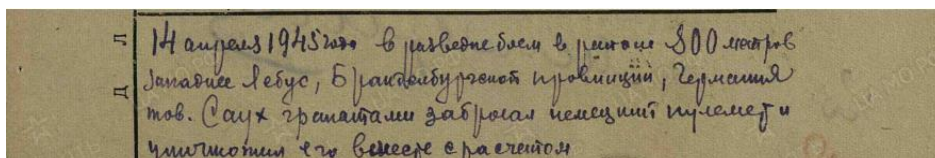 14 апреля 1945 года в разведке боем в районе 800 метров
Западнее Лебус, Бранденбургской провинции, Германия
тов. Саух гранатами забросал немецкий пулемет и
уничтожил его вместе с расчетом